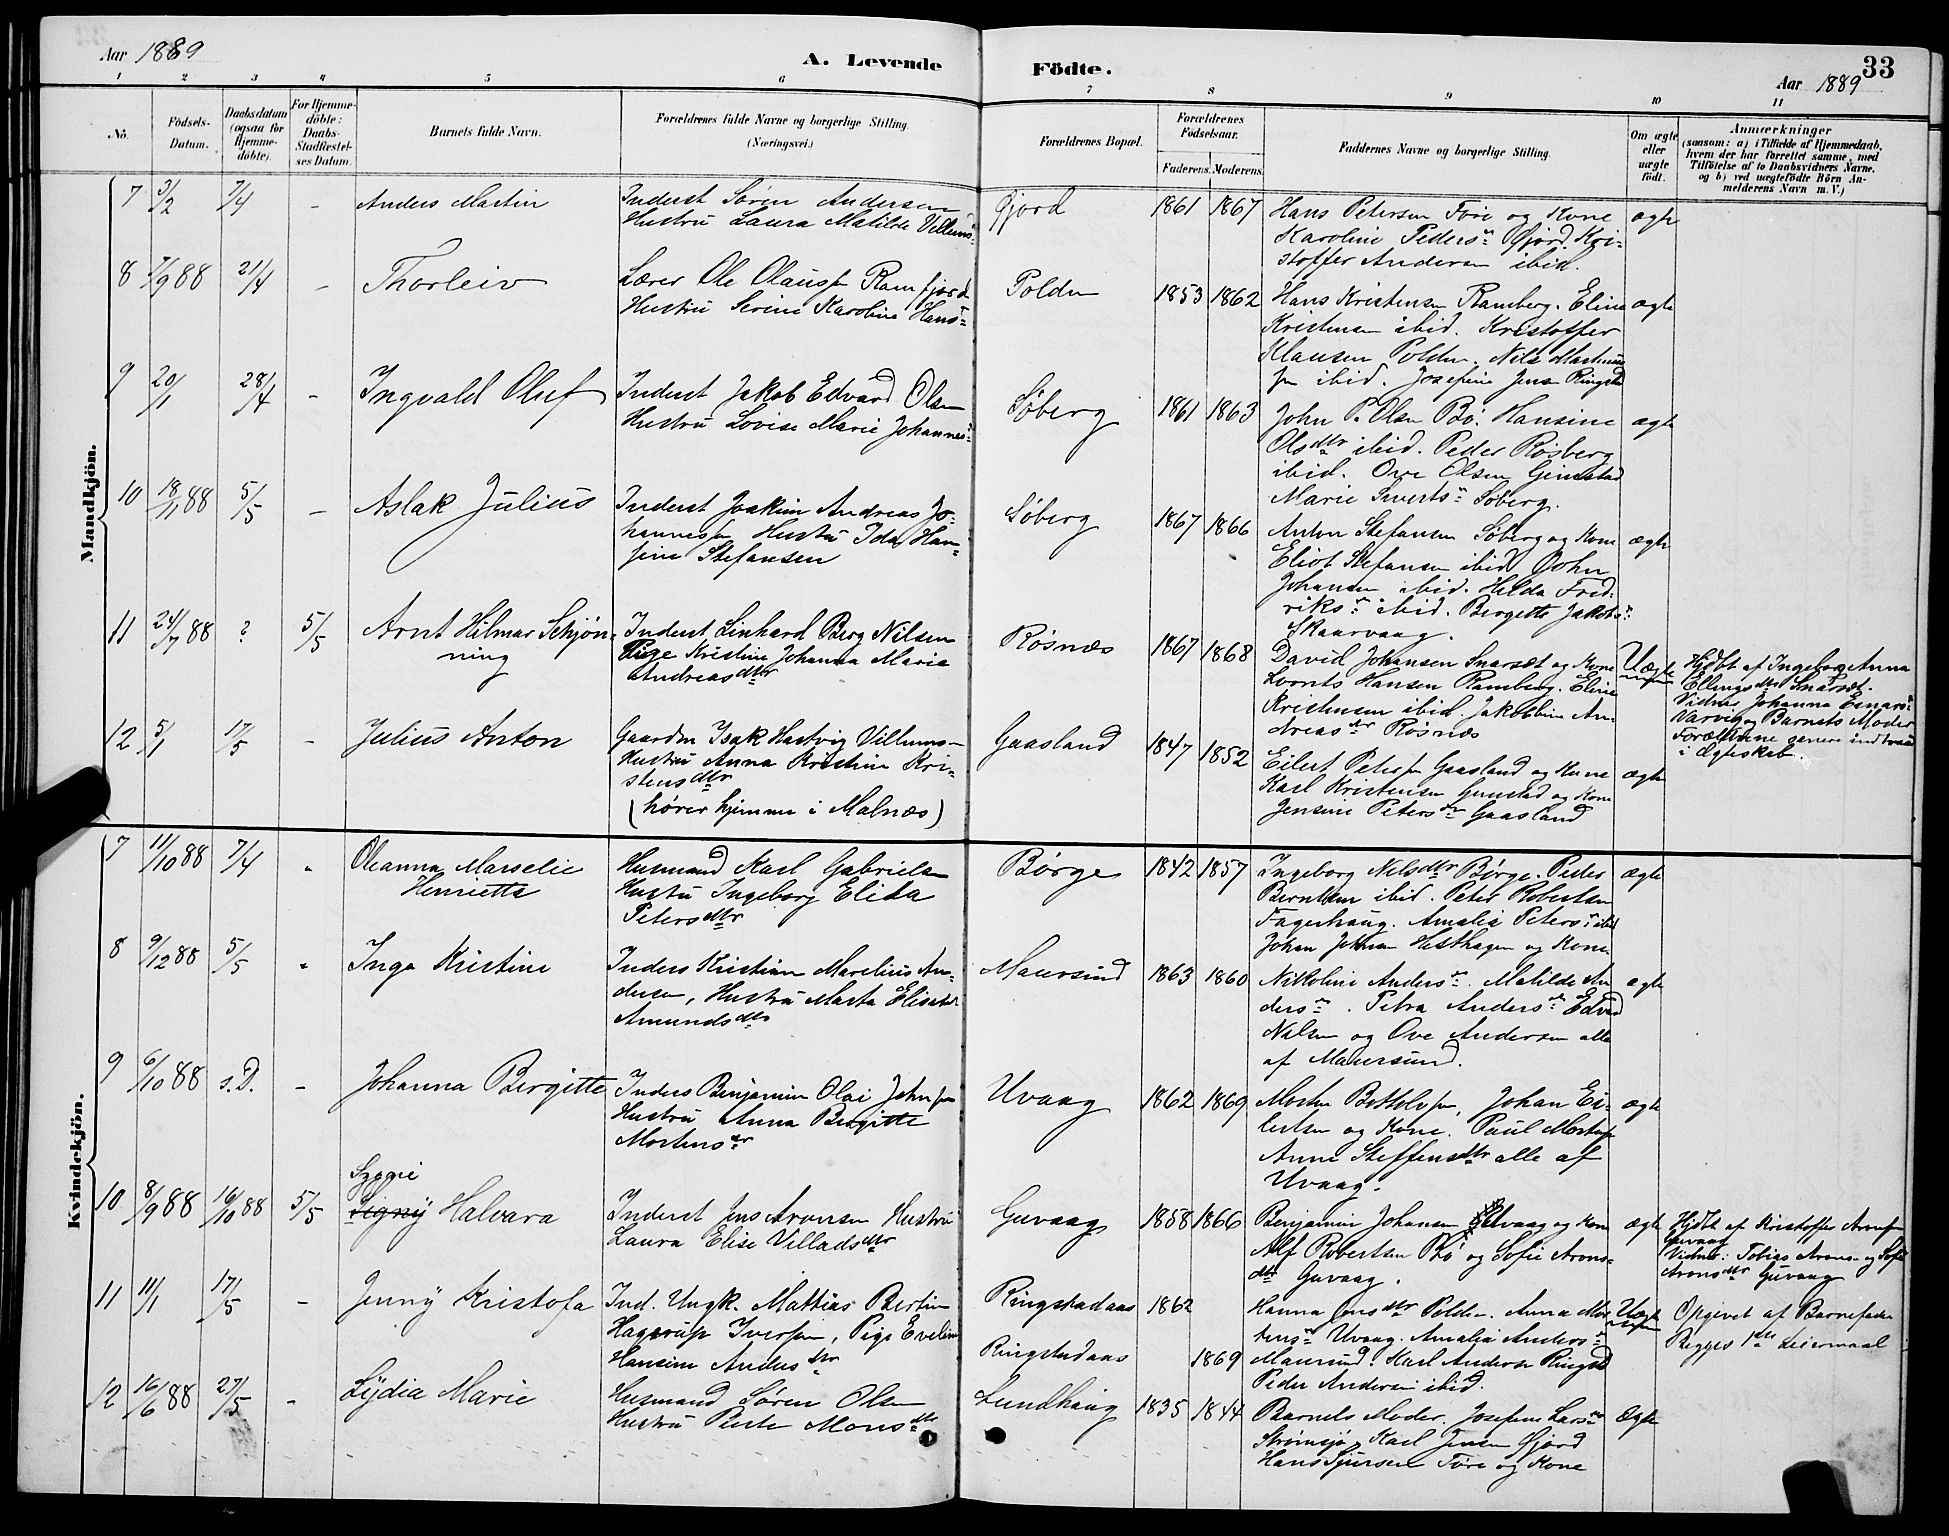 Aar 1889
A. Levende
Födte.
33
Aar 1889
1 2 3 4 5 6 7 8 9 10 11
No.
Födsels-Datum.
Daabsdatum (ogsaa for Hjemme-döbte).
For Hjemme-döbte: Daabs-Stadfæstel-ses Datum.
Barnets fulde Navn.
Forældrenes fulde Navne og borgerlige Stilling. (Næringsvei.)
Forældrenes Bopæl.
Forældrenes Födselsaar.
Faderens. Moderens.
Faddernes Navne og borgerlige Stilling.
Om ægte eller uægte födt.
Anmærkninger
(saasom: a) i Tilfælde af Hjemmedaab, hvem der har forrettet samme, med Tilföielse af to Daabsvidners Navne, og b) ved uægtefödte Börn An-melderens Navn m. V.)
Mandkjön.
7 3/2 7/4 - Anders Martin
Inderst Sören Andersen
Hustru Laura Matilde Villums
Gjord 1861 1867
Hans Petersen Före og Kone
Karoline Peders Gjord. Kri-
stoffer Andersen ibid.
ægte
8 7/9 88 21/4 - Thorleiv
Lærer Ole Olausen Ramfjord
Hustru Serine Karoline Hans
Polden 1853 1862
Hans Kristensen Ramberg. Eline
Kristensen ibid. Kristoffer
Klausen Polden. Nils Martinus
sen ibid. Josefine Jensen Ringstad
ægte
9 20/1 28/4 - Ingvald Oluf
Inderst Jakob Edvard Olsen
Hustru Lovise Marie Johannes
Söberg 1861 1863
John P. Olsen Bö. Hansine
Olsdtr ibid. Peder Rösberg
ibid. Ove Olsen Gimstad
Marie Siverts Söberg.
ægte
10 18/11 88 5/5 - Aslak Julius
Inderst Joakim Andreas Jo-
hannessen Hustru Ida Han-
sine Stefansen
Söberg 1867 1866
Anton Stefansen Söberg og Kone
Eliot Stefansen ibid. John
Johansen ibid. Hilda Fred-
riks ibid. Bergitte Jakobs
Skaarvaag.
ægte
11 24/7 88 ? 5/5 Arnt Hilmar Schjön-
ning
Inderst Linhard Berg Nilsen
Pige Kristine Johanna Marie
Andreasdtr
Rösnæs 1867 1868
David Johansen Snarset og Kone
Lorents Hansen Ramberg. Eline
Kristensen ibid Jakobine An-
dreasdtr Rösnæs
Uægte
Hjdbt af Ingeborg Anna
Ellingsdtr Snarset.
Vidner Johanna Einars
Varvig og Barnets Moder
Forældrene senere indtraadt
i Ægteskab.
12 5/1 17/5 - Julius Anton
Gaardm Isak Hartvig Villums-
Hustru Anna Kristine Kri-
stensdtr
(hörer hjemme i Malnæs)
Gaasland 1847 1852
Eilert Petersen Gaasland og Kone
Karl Kristensen Gimstad og Kone
Jensine Peters Gaasland
ægte
Kvindekjön.
7 11/10 88 7/4 " Oleanna Marselie
Henriette
Husmand Karl Gabrielsen
Hustru Ingeborg Elida
Petersdtr
Börge 1842 1857
Ingeborg Nilsdtr Börge. Peder
Berntsen ibid. Peter Robertsen
Fagerhaug. Amalie Peters ibid
Johan Johnsen Hesthagen og Kone
ægte
8 9/12 88 5/5 " Inga Kristine
Inders Kristian Marelius An-
dersen, Hustru Marta Elisabet
Amundsdtr
Maursund 1863 1860
Nikoline Anders. Matilde An
ders. Petra Anders Edvard
Nilsen og Ove Andersen alle
af Maursund.
ægte
9 6/10 88 s.D. - Johanna Bergitte
Inders Benjamin Olai Johnsen
Hustru Anna Bergitte
Mortensdtr
Uvaag 1862 1869
Morten Bottolvsen, Johan Ei-
lertsen og Kone. Paul Mortensen
Anne Steffensdtr alle af
Uvaag.
ægte
10 8/9 88 16/10 88 5/5 Syggie
Signy Halvara
Inderst Jens Aronsen Hustru
Laura Elise Villadsdtr
Guvaag 1858 1866
Benjamin Johansen Guvaag og Kone
Alf Robertsen Bö og Sofie Arons-
dtr Guvaag.
ægte
Hjdbt af Kristoffer Aronsen
Guvaag
Vidner: Tobias Arons- og Sofie
Aronsdtr Guvaag
11 11/1 17/5 - Jenny Kristofa
Ind. Ungk. Mattias Bertin
Hagerup Iversen, Pige Eveline
Hansine Andersdtr
Ringstadaas 1862
Ringstadaas 1869
Hanna Jensdtr Polden. Anna Mor
tens Uvaag. Amalie Anders
Maursund. Karl Andersen Ringstad
Peder Andersen ibid.
Uægte
Opgivet af Barnefader
Begges 1ste Leiermaal
12 16/6 88 27/5 - Lydia Marie
Husmand Sören Olsen
Hustru Mons
Lundhaug 1835 1844
Barnets Moder. Josefine Lars
Strömsjö, Karl Jensen Gjord
Hans Sjursen Före og Kone
Ægte